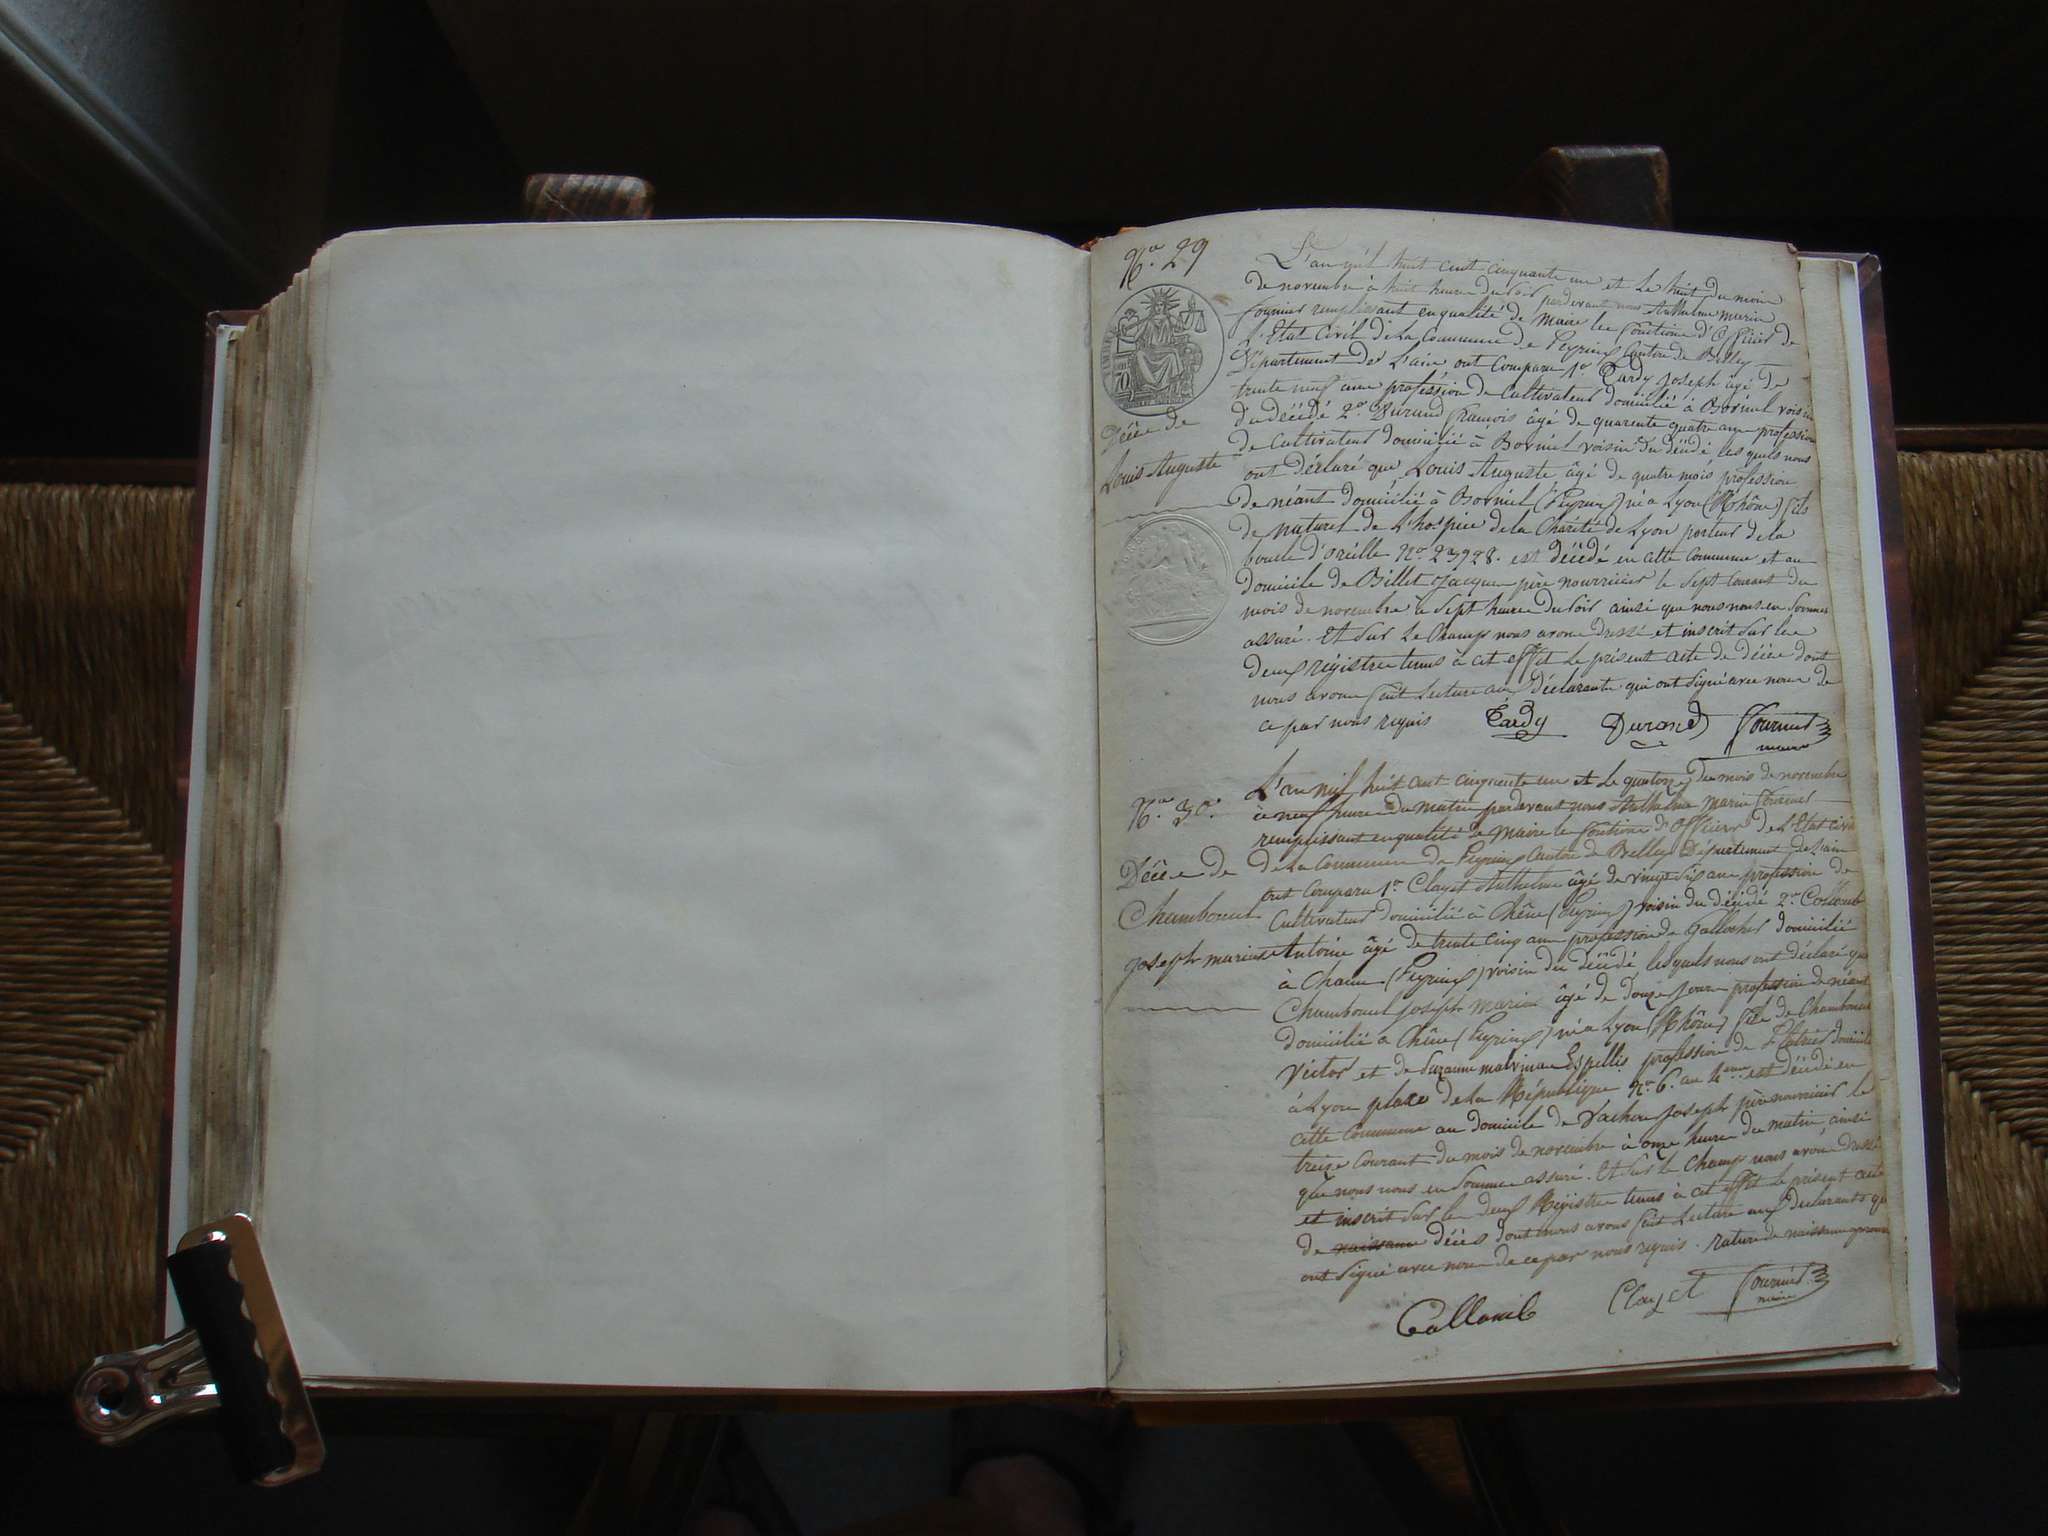 No. 29
L'an mil huit cent cinquante un et le huit du mois
de novembre à huit heures du soir pardevant nous Anthelme Marin
Fournier remplissant en qualité de Maire les fonctions d'Officier de
l'Etat Civil de la Commune de Peyrieu Canton de Belley
Département de l'ain, ont comparu 1o Tardy Joseph âgé de
trente neuf ans profession de Cultivateur domicilié à Borniel voisin
du décédé 2o Durand François âgé de quarente quatre ans profession
de Cultivateur domicilié à Borniel voisin du décédé les quels nous
ont déclaré que Louis Auguste âgé de quatre mois profession
de néant domicilié à Borniel (Peyrieu) né à Lyon (Rhône) fils
de naturel de l'hospice de la Charité de Lyon porteur de la
boucle d'oreille No. 23928. est décédé en cette commune et au
domicile de Billet Jacques père nourricier le sept courant du
mois de novembre à sept heures du soir ainsi que nous nous en sommes
assuré. Et sur le Champ nous avons dressé et inscrit sur les
deux régistres tenus à cet effet le présent acte de décès dont
nous avons fait lecture aux déclarants qui ont signé avec nous de
ce par nous requis
Tardy Durand Fournier
maire
Décès de
Louis Auguste
No. 30.
L'an mil huit cent cinquante un et le quatorze du mois de novembre
à neuf heures du matin pardevant nous Anthelme Marin Fournier
remplissant en qualité de Maire les fonctions d'Officier de l'Etat Civil
de la Commune de Peyrieu Canton de Belley Département de l'ain
ont comparu 1o Clayet Anthelme âgé de vingt six ans profession de
Cultivateur domicilié à Chêne (Peyrieu) voisin du décédé 2o Collomb
Antoine âgé de trente cinq ans profession de Gallocher domicilié
à Chêne (Peyrieu) voisin du décédé lesquels nous ont déclaré que
Chambonet Joseph Marius âgé de douze jours profession de néant
domicilié à Chêne (Peyrieu) né à Lyon (Rhône) fils de Chambonet
Victor et de Suzanne malvina Espellis profession de Plâtrier domicilié
à Lyon place de la République No. 6. au 4eme est décédé en
cette Commune au domicile de Vachon Joseph père nourricier le
treize Courant du mois de novembre à onze heures du matin, ainsi
que nous nous en sommes assuré. Et sur le Champ nous avons dressé
et inscrit sur les deux Régistres tenus à cet effet le présent acte
de naissance décès dont nous avons fait lecture aux déclarants qui
ont signé avec nous de ce par nous requis. rature de naissance
Collomb Clayet Fournier
maire
Décès de
Chambonet
Joseph marius